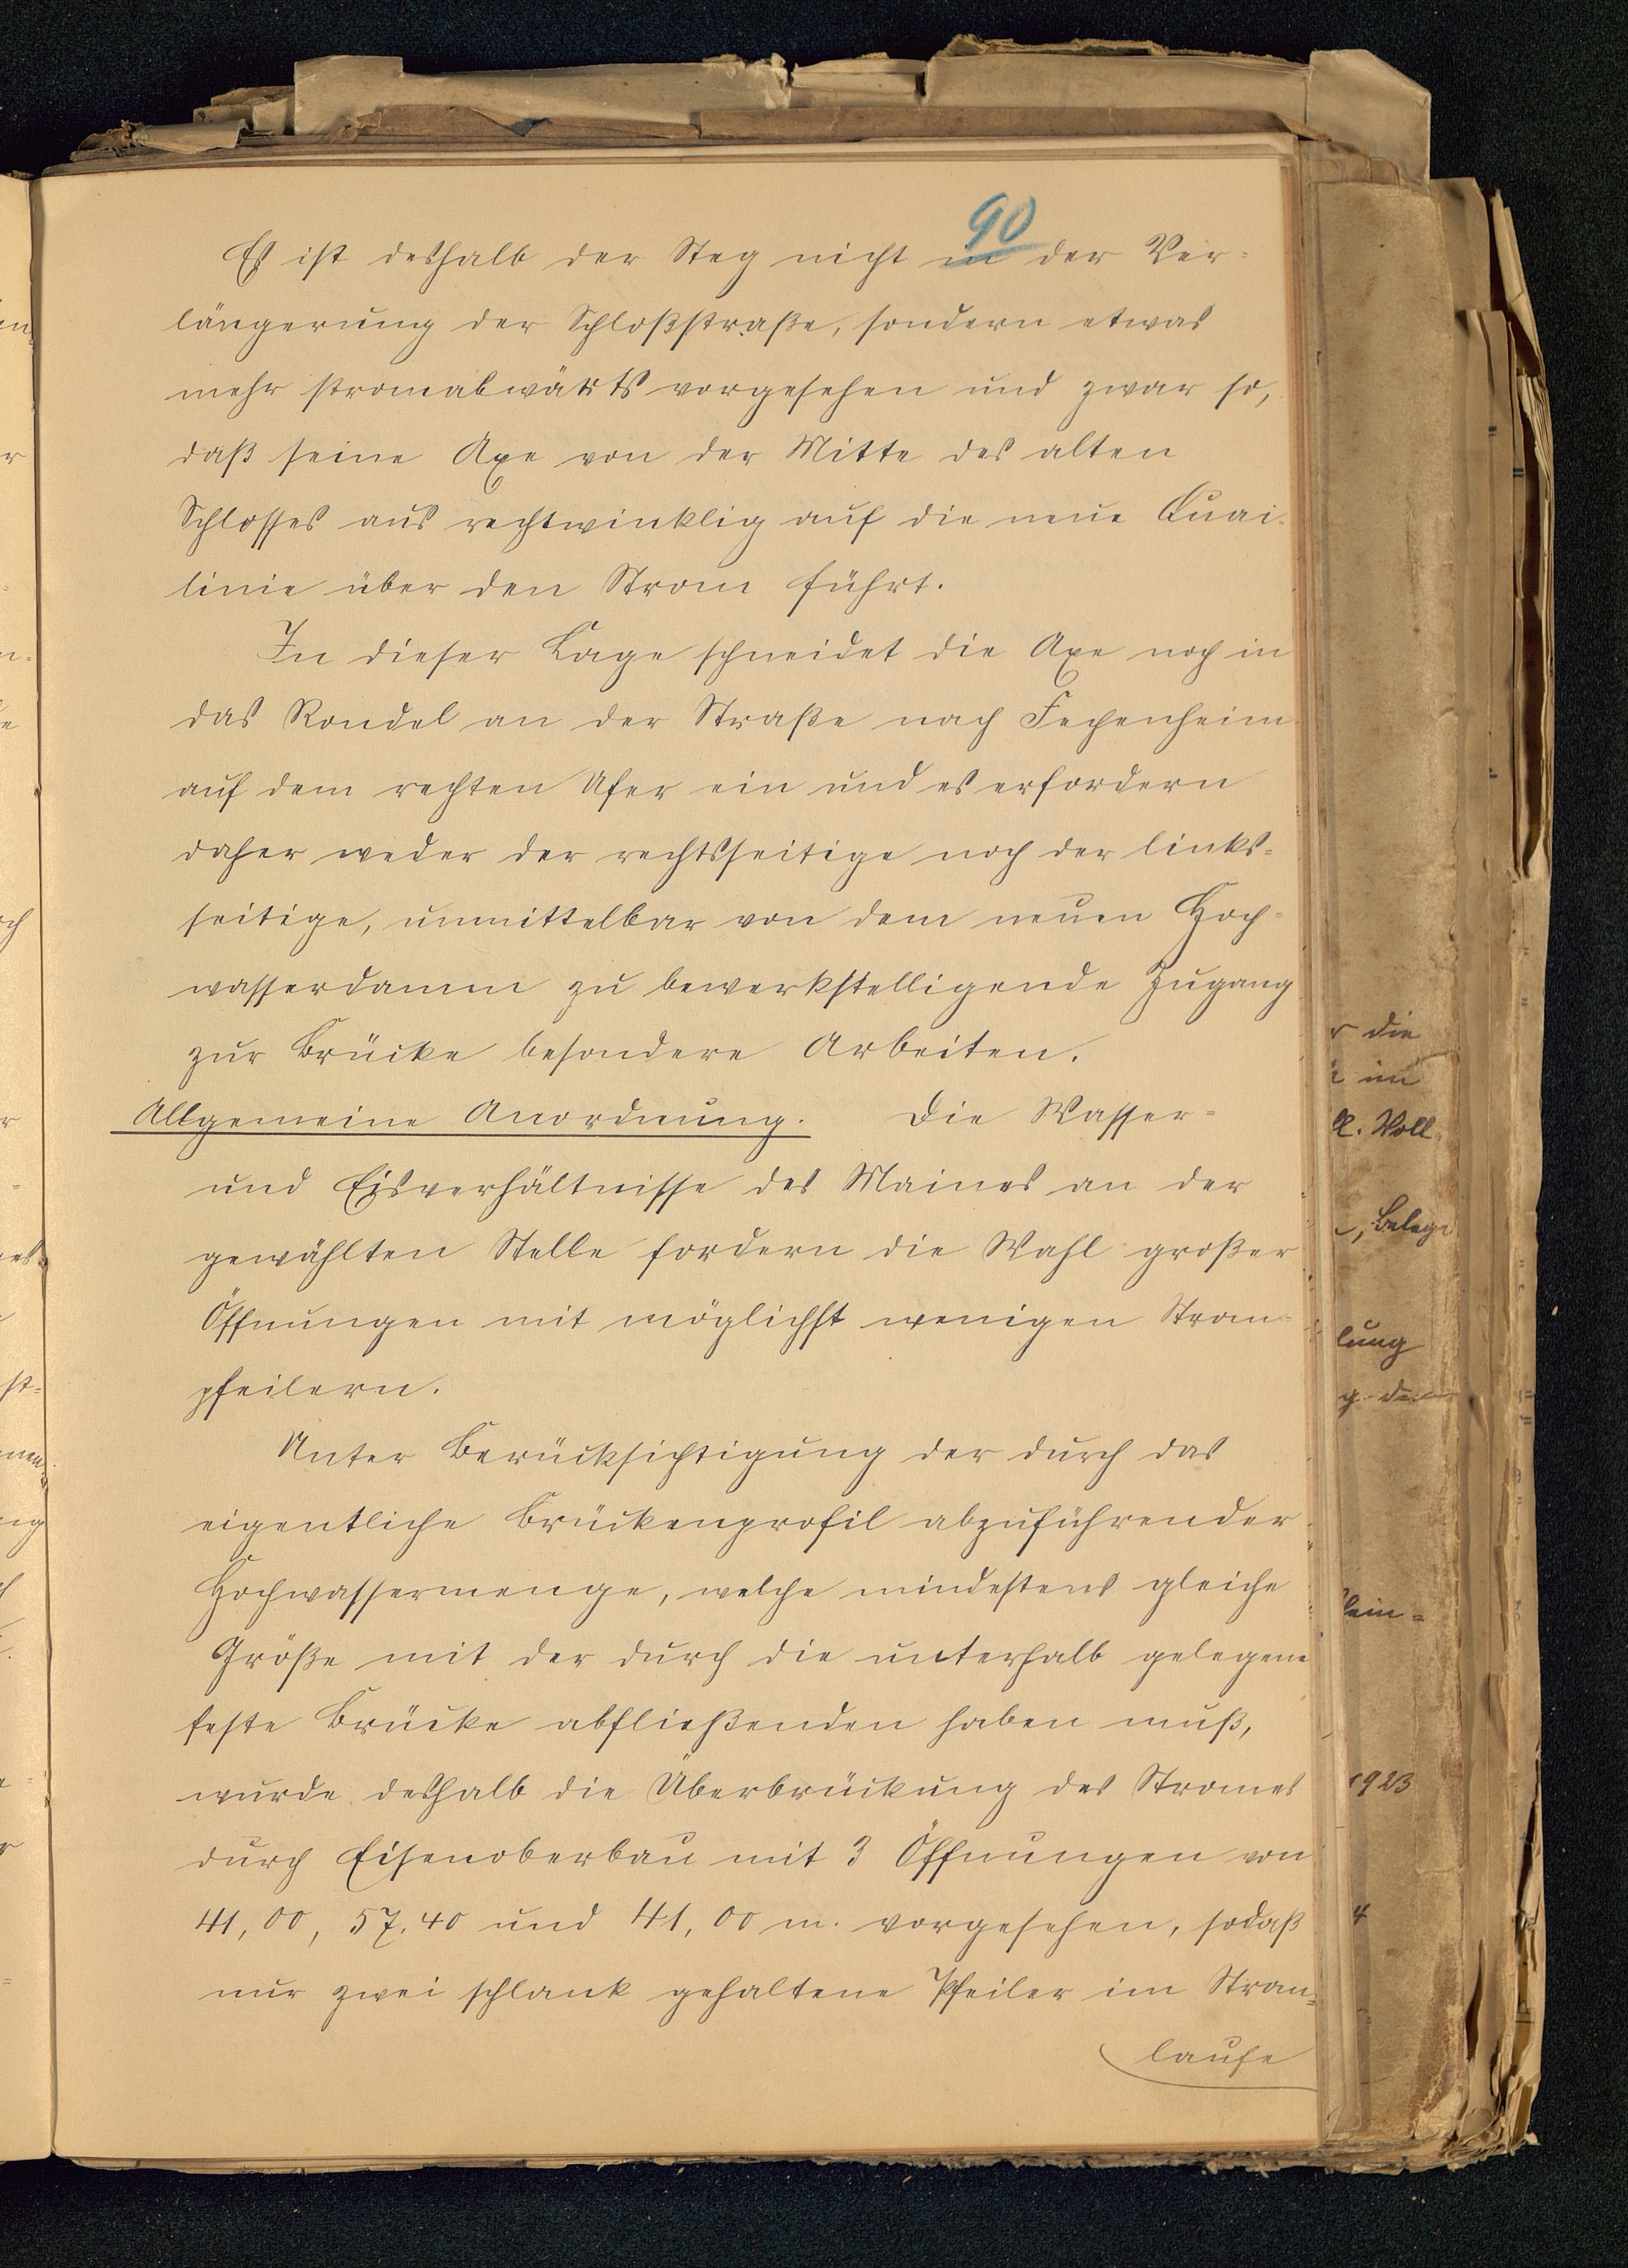 90
Es ist deshalb der Steg nicht in der Ver-
längerung der Schloßstraße, sondern etwas
mehr stromabwärts vorgesehen und zwar so,
daß seine Axe von der Mitte des alten
Schlosses aus rechtwinklig auf die neue Quai-
linie über den Strom führt.
In dieser Lage schneidet die Axe noch in
das Rondel an der Straße nach Fechenheim
auf dem rechten Ufer ein und es erfordern
daher weder der rechtsseitige noch der links-
seitige, unmittelbar von dem neuen Hoch-
wasserdamm zu bewerkstelligende Zugang
zur Brücke besondere Arbeiten.
Allgemeine Anordnung. Die Wasser-
und Eisverhältnisse des Maines an der
gewählten Stelle fordern die Wahl großer
Öffnungen mit möglichst wenigen Strom-
pfeilern.
Unter Berücksichtigung der durch das
eigentliche Brückenprofil abzuführender
Hochwassermenge, welche mindestens gleiche
Größe mit der durch die unterhalb gelegene
feste Brücke abfließenden haben muß,
wurde deshalb die Überbrückung des Stromes
durch Eisenoberbau mit 3 Öffnungen von
41,00, 57.40 und 41,00 m. vorgesehen, sodaß
nur zwei schlank gehaltene Pfeiler im Strom-
laufe
r die
im
Voll
, Belege
lung
g der
lein=
1923
4